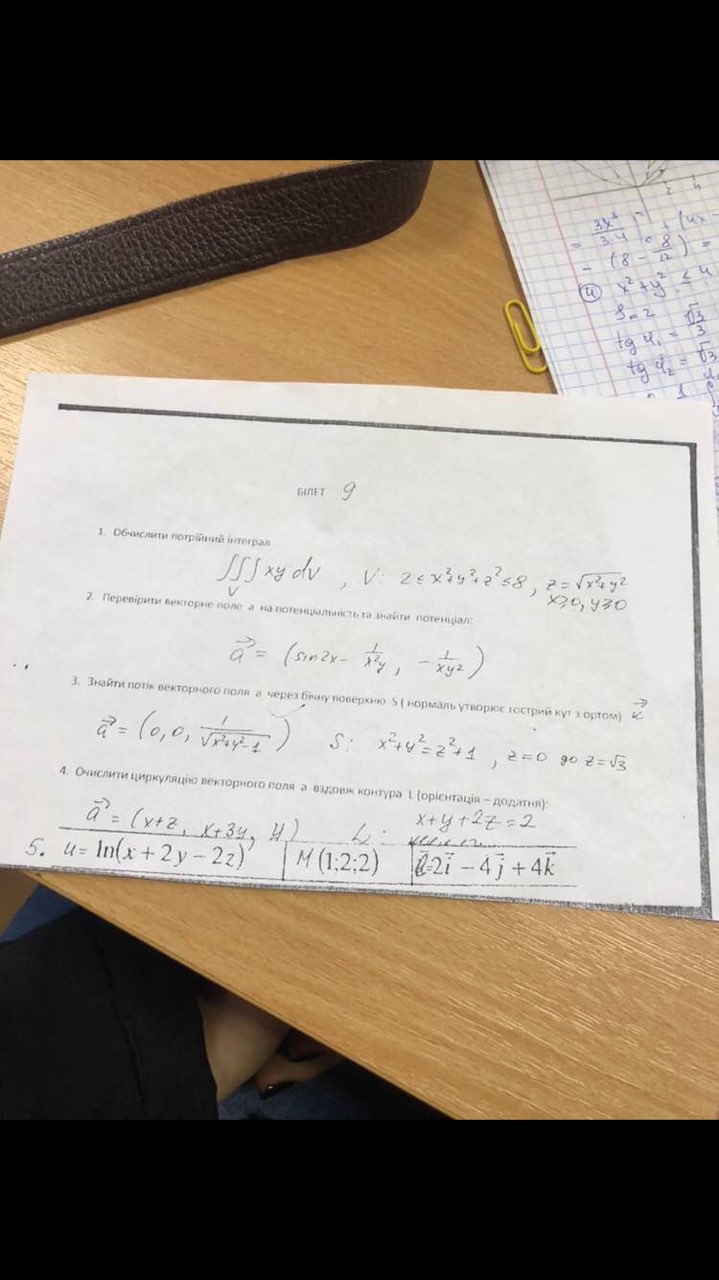 = 3x³/3·4
- (8 - 8/12) =
④ x² + y² ≤ 4
tg φ₁ = √3/3
tg φ₂ = √3
БІЛЕТ 9
1. Обчислити потрійний інтеграл
∭ xy dv , V: 2 ≤ x²+y²+z² ≤ 8 , z = √x²+y²
V
x≥0, y≥0
2. Перевірити векторне поле а на потенціальність та знайти потенціал:
a⃗ = (sin2x - 1/x²y , - 1/xy²)
3. Знайти потік векторного поля а через бічну поверхню S ( нормаль утворює гострий кут з ортом) k⃗
a⃗ = (0, 0, 1/√x²+y²-1) S: x²+y² = z²+1 , z=0 до z=√3
4. Очислити циркуляцію векторного поля а вздовж контура L (орієнтація – додатня):
a⃗ = (x+z, x+3y, y) L: x+y+2z=2
5. u = ln(x + 2y − 2z) M (1;2;2) 2i⃗ − 4j⃗ + 4k⃗